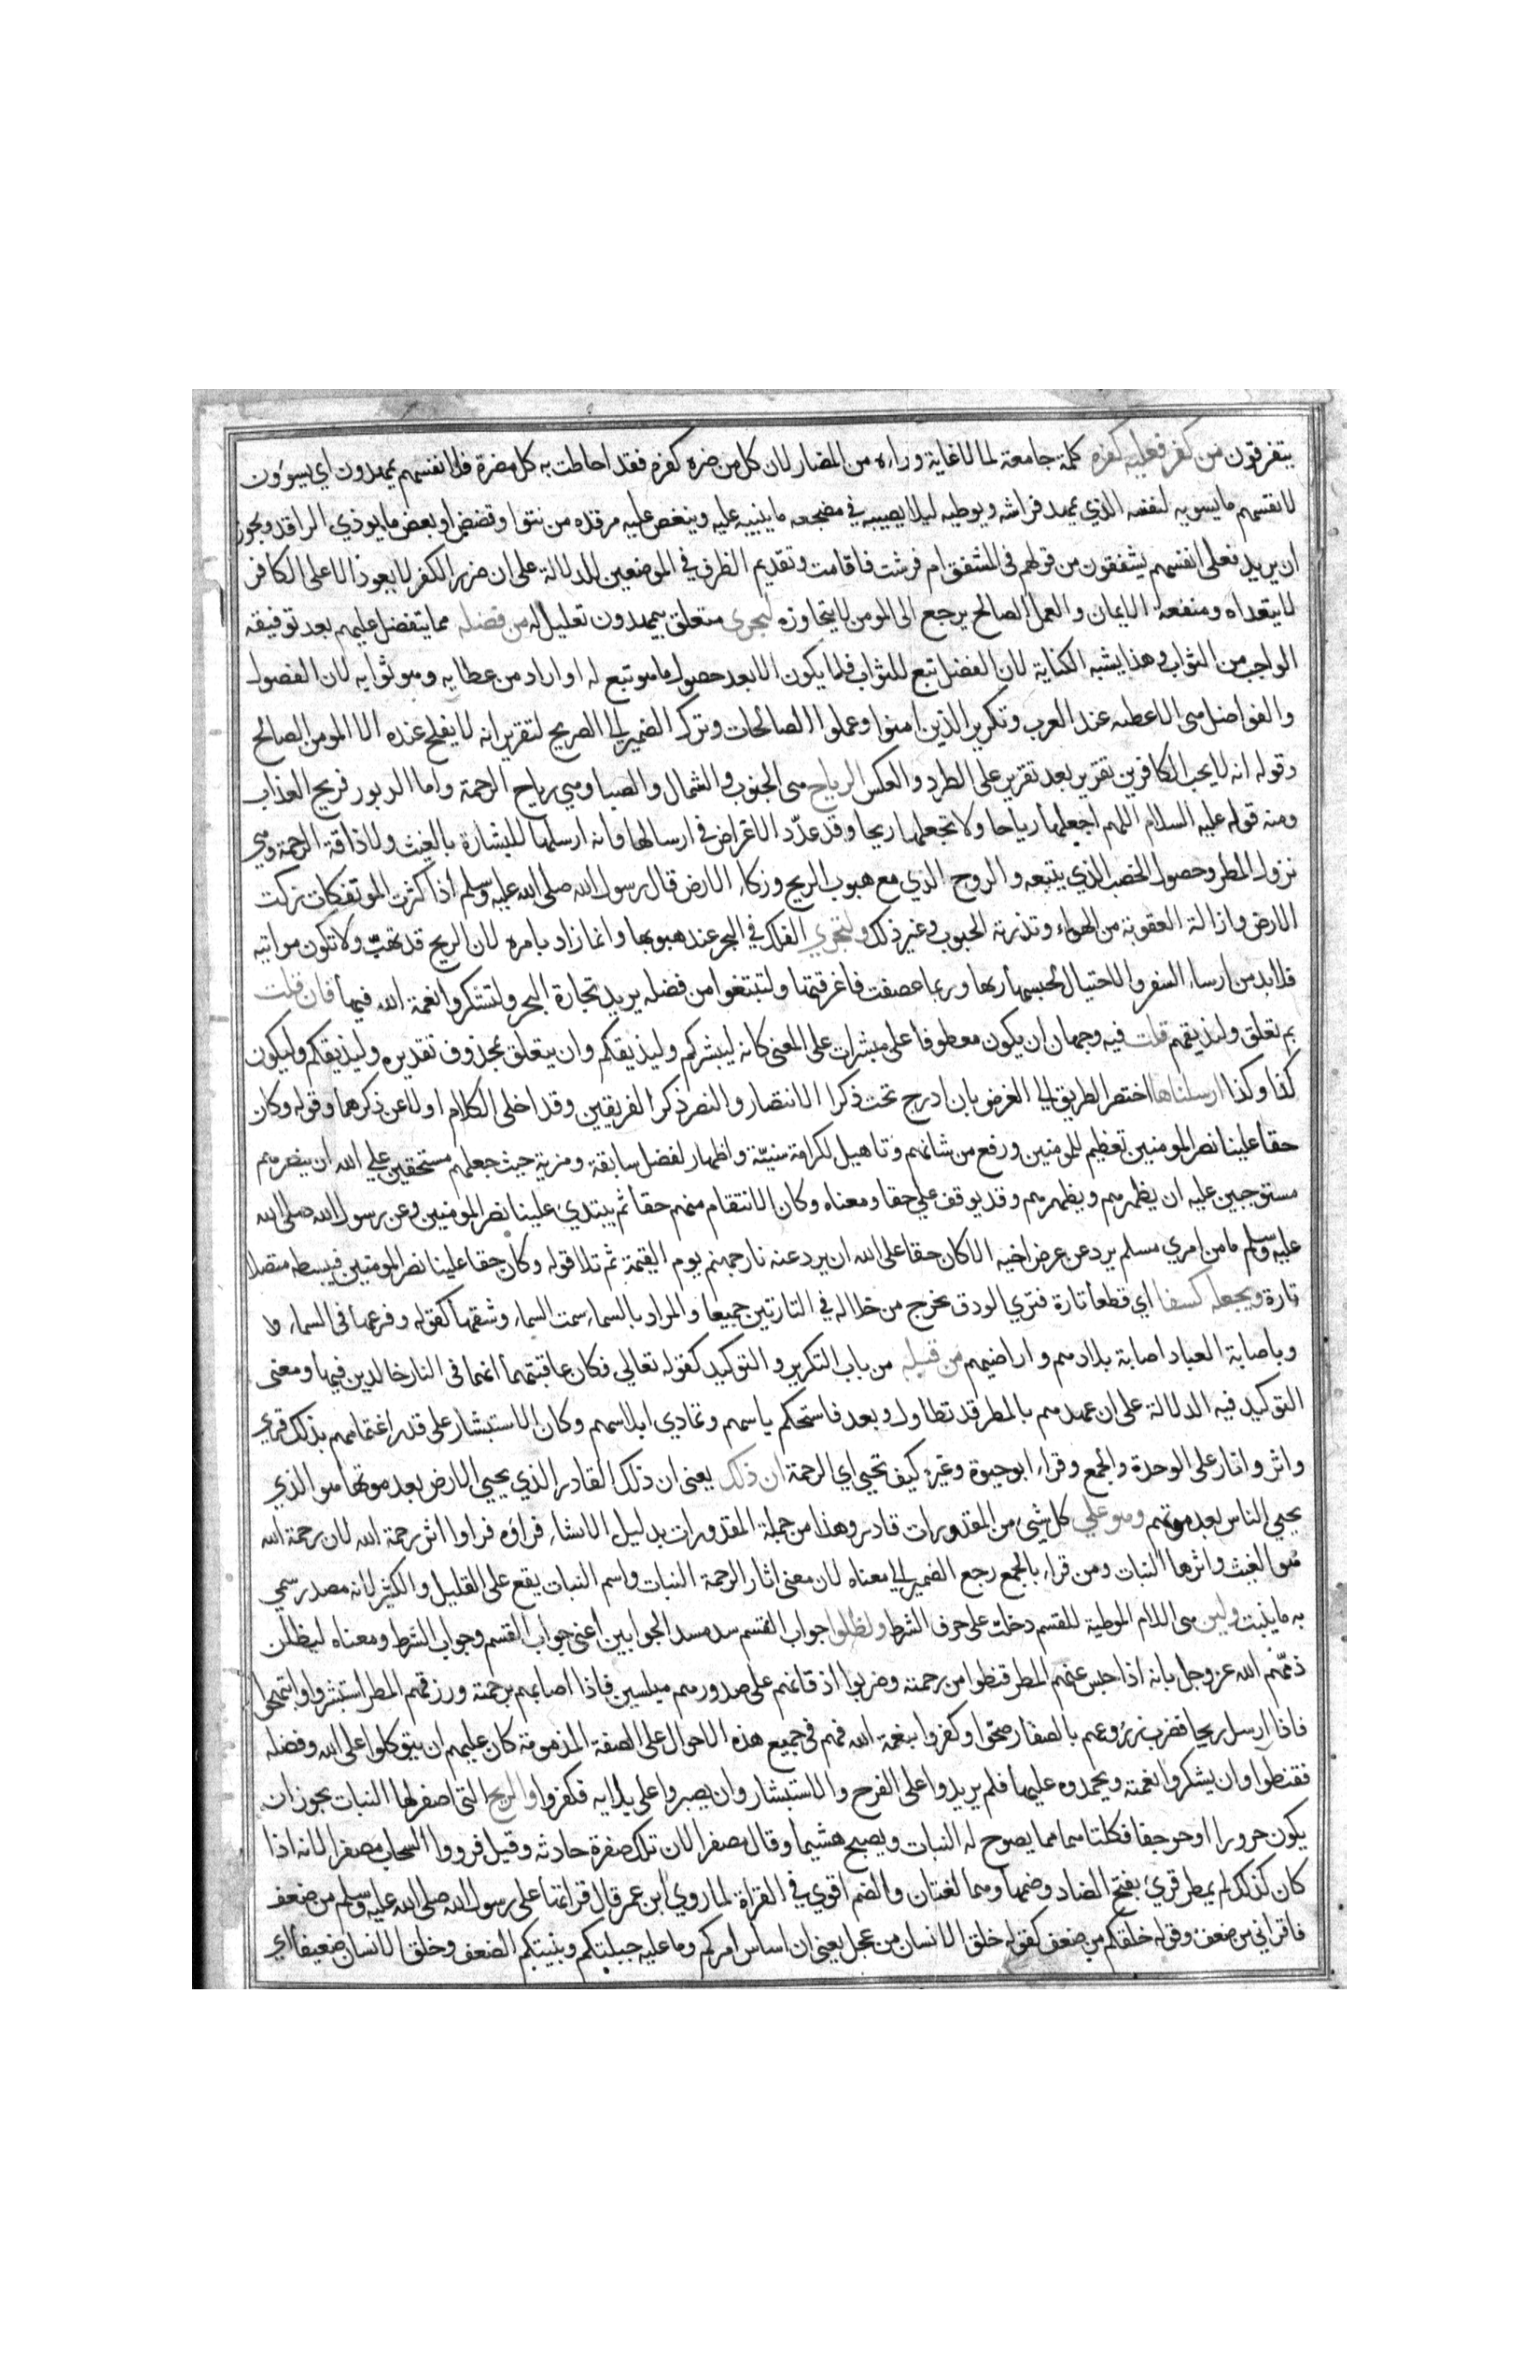 يتفرقون من كفر فعليه كفره كلمة جامعة لما لا غاية وراءه من المضار لان كل من ضره كفره فقد احاطت به كل مضرة فلا نفسهم يمهدون اي يسوون
لانفسهم ما يسويه لنفسه الذي يمهد فراشه ويوطيه ليلا يصيبه في مضجعه ما ينبيه عليه وينغص عليه مرقده من نتؤ او قضض او بعض ما يوذي الراقد ويجوز
ان يريد فعلى انفسهم يشفقون من قولهم في المشفق ام فرشت فاقامت وتقديم الظرف في الموضعين للدلالة على ان ضرر الكفر لا يعود الا على الكافر
لا يتعداه ومنفعة الايمان والعمل الصالح يرجع الى المومن لا يتجاوزه ليجزى متعلق بيمهدون تعليل له من فضله مما يتفضل عليهم بعد توفيقه
الواجب من الثواب وهذا يشبه الكناية لان الفضل تبع للثواب فلا يكون الا بعد حصول ما هو تبع له او اراد من عطايه وهو ثوابه لان الفضول
والفواضل هى الاعطيه عند العرب وتكرير الذين امنوا وعملوا الصالحات وترك الضمير الى الصريح لتقرير انه لا يفلح عنده الا المومن الصالح
وقوله انه لا يحب الكافرين تقرير بعد تقرير على الطرد والعكس الرياح هى الجنوب والشمال والصبا وهي رياح الرحمة واما الدبور فريح العذاب
ومنه قوله عليه السلام اللهم اجعلها رياحا ولا تجعلها ريحا وقد عدّد الاغراض في ارسالها وانه ارسلها للبشارة بالغيث ولاذاقة الرحمة وهي
نزول المطر وحصول الخصب الذي يتبعه والروح الذي مع هبوب الريح وزكاء الارض قال رسول الله صلى الله عليه وسلم اذا كثرت الموتفكات زكت
الارض وازالة العفونة من الهواء وتذرية الحبوب وغير ذلك ولتجري الفلك في البحر عند هبوبها وانما زاد بامره لان الريح قد تهبّ ولا تكون مواتيه
فلا بد من ارساء السفن والاحتيال لحبسها ربها وربما عصفت فاغرقتها ولتبتغوا من فضله يريد تجارة البحر ولتشكروا نعمة الله فيها فان قلت
بم تعلق وليذيقهم قلت فيه وجهان ان يكون معطوفا على مبشرات على المعنى كانه ليبشركم وليذيقكم وان يتعلق بمحذوف تقديره وليذيقكم وليكون
كذا وكذا ارسلناها اختصر الطريق الى الغرض بان ادرج تحت ذكر الانتصار والنصر ذكر الفريقين وقد اخلى الكلام اولا عن ذكرهما وقوله وكان
حقا علينا نصر المومنين تعظيم للمومنين ورفع من شانهم وتاهيل لكرامة سنيّة واظهار لفضل سابقة ومزية حيث جعلهم مستحقين على الله ان ينصرهم
مستوجبين عليه ان يظهرهم ويظهر بهم وقد يوقف على حقا ومعناه وكان الانتقام منهم حقا ثم يبتدي علينا نصر المومنين وعن رسول الله صلى الله
عليه وسلم ما من امري مسلم يرد عن عرض اخيه الا كان حقا على الله ان يرد عنه نار جهنم يوم القيمة ثم تلا قوله وكان حقا علينا نصر المومنين فيبسطه متصلا
تارة ويجعله كسفا اي قطعا تارة فترى الودق يخرج من خلاله في التارتين جميعا والمراد بالسماء سمت السماء وشقها كقوله وفرعها فى السماء
وباصابة العباد اصابة بلادهم واراضيهم من قبله من باب التكرير والتوكيد كقوله تعالى فكان عاقبتهما انهما فى النار خالدين فيها ومعنى
التوكيد فيه الدلالة على ان عهدهم بالمطر قد تطاول وبعد فاستحكم ياسهم وتمادى ابلاسهم وكان الاستبشار على قدر اغتمامهم بذلك قرى
واثر واثار على الوحدة والجمع وقراء ابو حيوة وغيره كيف تحيي اي الرحمة ان ذلك يعنى ان ذلك القادر الذي يحيي الارض بعد موتها هو الذي
يحيي الناس بعد موتهم وهو على كل شي من المقدورات قادر وهذا من جملة المقدورات بدليل الانشاء فراؤه فراوا اثر رحمة الله لان رحمة الله
هو الغيث واثرها النبات ومن قراء بالجمع رجع الضمير الى معناه لان معنى اثار الرحمة النبات واسم النبات يقع على القليل والكثير لانه مصدر سمي
به ما ينبت ولين هى اللام الموطية للقسم دخلت على حرف الشرط ولظلوا جواب القسم سد مسد الجوابين اعنى جواب القسم وجواب الشرط ومعناه ليظلن
ذمّهم الله عز وجل بانه اذا حبس عنهم المطر قنطوا من رحمته وضربوا اذقانهم على صدورهم مبلسين فاذا اصابهم برحمته ورزقهم المطر استبشروا وابتهجوا
فاذا ارسل ريحا فضرب زروعهم بالصفار ضجوا وكفروا بنعمة الله فهم في جميع هذه الاحوال على الصفة المذمومة كان عليهم ان يتوكلوا على الله وفضله
فقنطوا وان يشكروا نعمته ويحمدوه عليها فلم يزيدوا على الفرح والاستبشار وان يصبروا على بلايه فكفروا والريح التى اصفر لها النبات يجوز ان
يكون حرورا او حرجفا فكلتاهما مما يصوح له النبات ويصبح هشيما وقال مصفرا لان تلك صفرة حادثه وقيل فرووا السحاب مصفرا لانه اذا
كان كذلك لم يمطر قرئ بفتح الضاد وضمها وهما لغتان والضم اقوي في القراة لما روي ابن عمر قال قراتها على رسول الله صلى الله عليه وسلم من ضعف
فاقراني من ضعف وقوله خلقكم من ضعف كقوله خلق الانسان من عجل يعنى ان اساس امركم وما عليه جبلتكم وبنيتكم الضعف وخلق الانسان ضعيفا اي